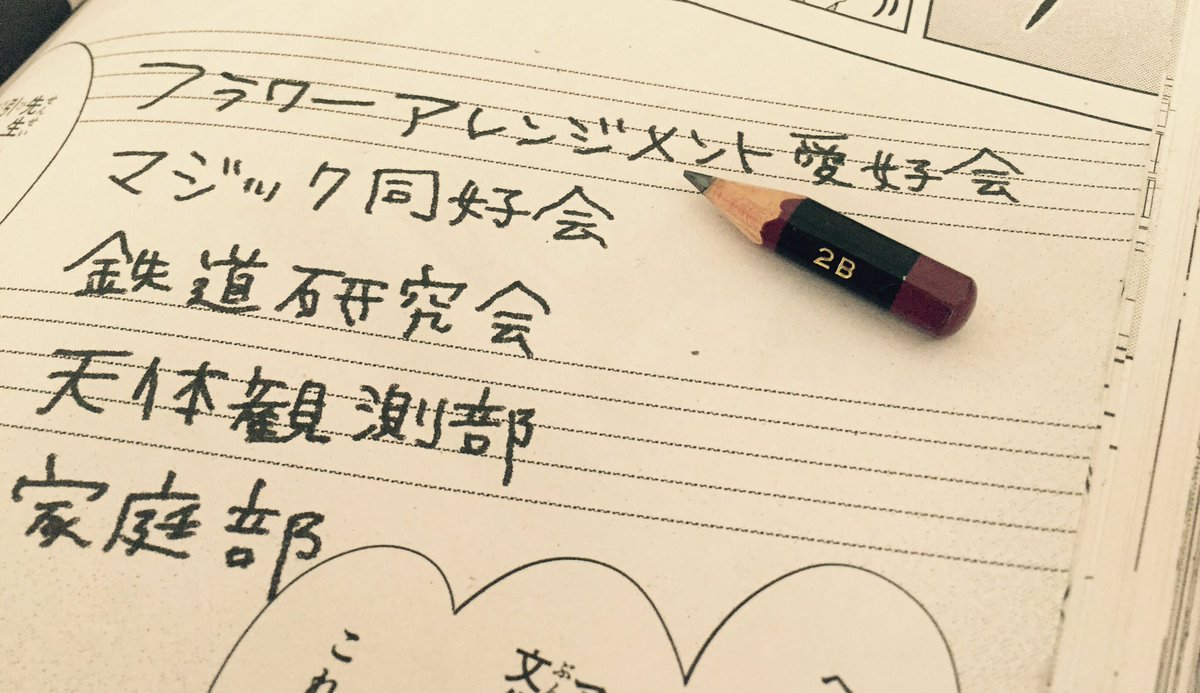 フラワーアレンジメント愛好会
マジック同好会
鉄道研究会
天体観測部
家庭部
2B
先生
こ
れ
文